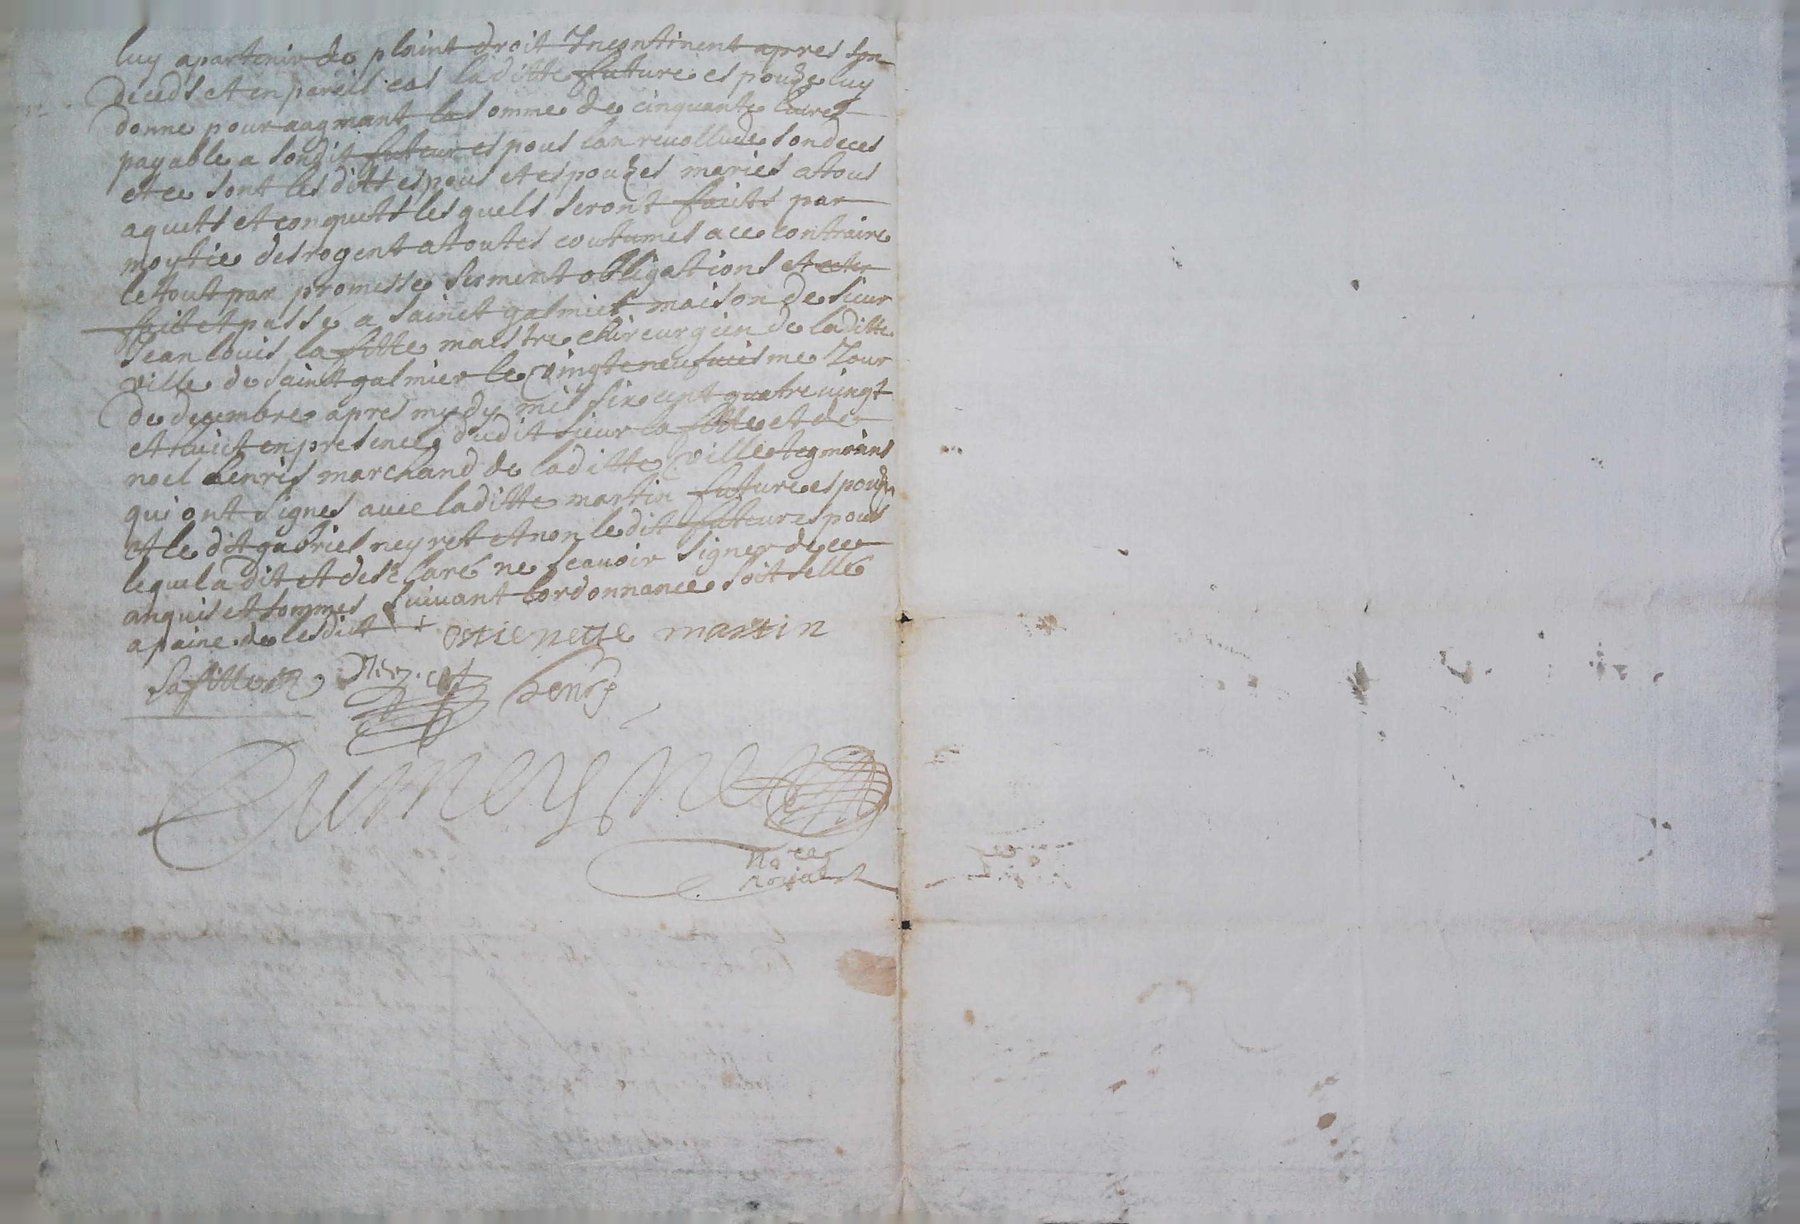 luy apartenir de plaint droit Incontinent apres son
deceds et en pareils cas laditte future espouze luy
donne pour augmant la somme de cinquante livres
payable a sondit futeur espous lan revollu de son deces
et ce sont lesditts espous et espouzes maries a tous
aquets et conquets lesquels seront faicts par
moytie desrogent a toutes coutumes a ce contraire
le tout par promesse serment obligations et
faict et passé a sainct galmier maison de sieur
Jean louis lafitte maistre chireurgien de laditte
ville de sainct galmier le vingt neufviesme Jour
de decembre apres mydy mil six cent quatre vingt
et huict en presence dudit sieur lafitte et de
noel henris marchand de laditte ville tegmoins
qui ont signes avec laditte martin future espouze
et le dit gabriel neyret et non le dit futeur espous
lequel a dit et desclaré ne scavoir signer de ce
anquis et sommes suivant lordonnance soit sellé
a paine de lesdict
estienette martin
lafitte
henry
no.re
royal